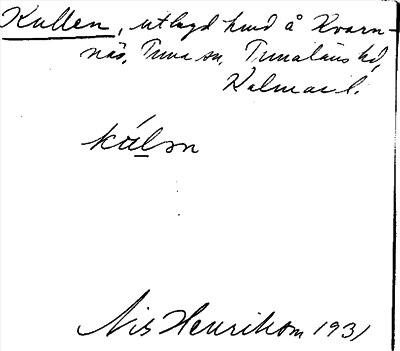 Kullen, utlagd hmd å Kvarn-
näs, Tuna sn, Tunaläns hd,
Kalmar l.
kúlɘn
Nils Henrikson 1931